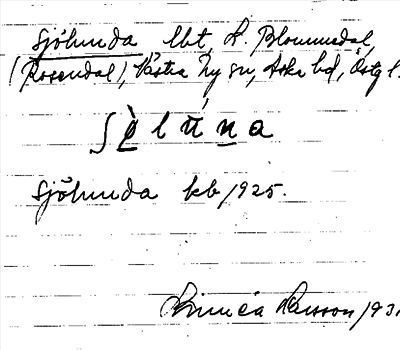 Sjölunda, lht, L. Blommedal,
(Rosendal), Västra Ny sn, Aska hd, Östg l.
ʃø̀lu̇na
Sjölunda kb 1925.
Linnéa Larsson 193